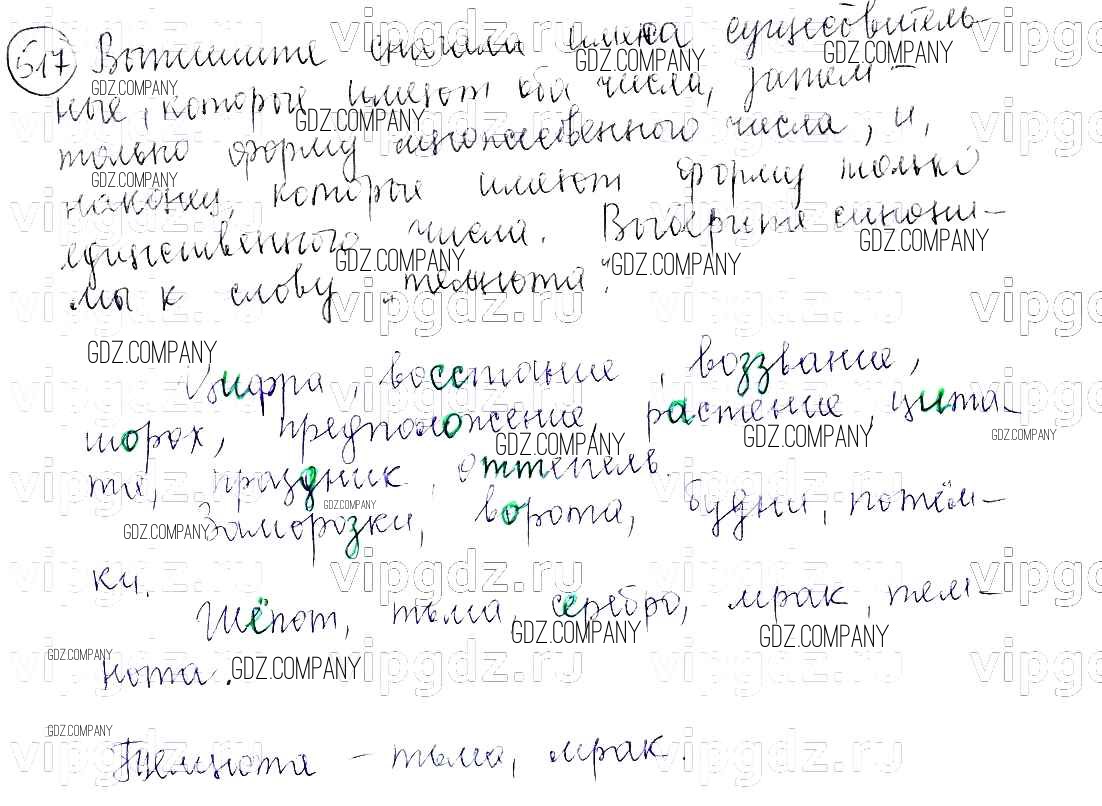 517 Выпишите сначала имена существитель-
ные, которые имеют оба числа, затем –
только форму множественного числа, и,
наконец, которые имеют форму только
единственного числа. Выберите синони-
мы к слову „темнота".
Цифра, восстание, воззвание,
шорох, предположение, растение, цита-
ты, праздник, оттепель.
Заморозки, ворота, будни, потём-
ки.
Шёпот, тьма, серебро, мрак, тем-
нота.
Темнота – тьма, мрак.
GDZ.COMPANY
vipgdz.ru